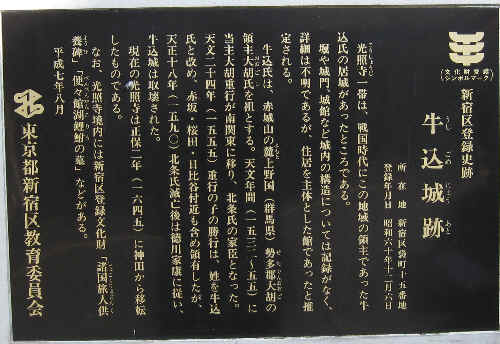 (文化財愛護
シンボルマーク)
新宿区登録史跡
牛込城跡
所在地 新宿区袋町十五番地
登録年月日 昭和六十年十二月六日
光照寺一帯は、戦国時代にこの地域の領主であった牛
込氏の居城があったところである。
堀や城門、城館など城内の構造については記録がなく、
詳細は不明であるが、住居を主体とした館であったと推
定される。
牛込氏は、赤城山の麓上野国(群馬県)勢多郡大胡の
領主大胡氏を祖とする。天文年間(一五三二〜五五)に
当主大胡重行が南関東に移り、北条氏の家臣となった。
天文二十四年(一五五五)重行の子の勝行は、姓を牛込
氏と改め、赤坂・桜田・日比谷付近も含め領有したが、
天正十八年(一五九〇)北条氏滅亡後は徳川家康に従い、
牛込城は取壊された。
現在の光照寺は正保二年(一六四五)に神田から移転
したものである。
なお、光照寺境内には新宿区登録文化財「諸国旅人供
養碑」「便々館湖鯉鮒の墓」などがある。
平成七年八月
東京都新宿区教育委員会